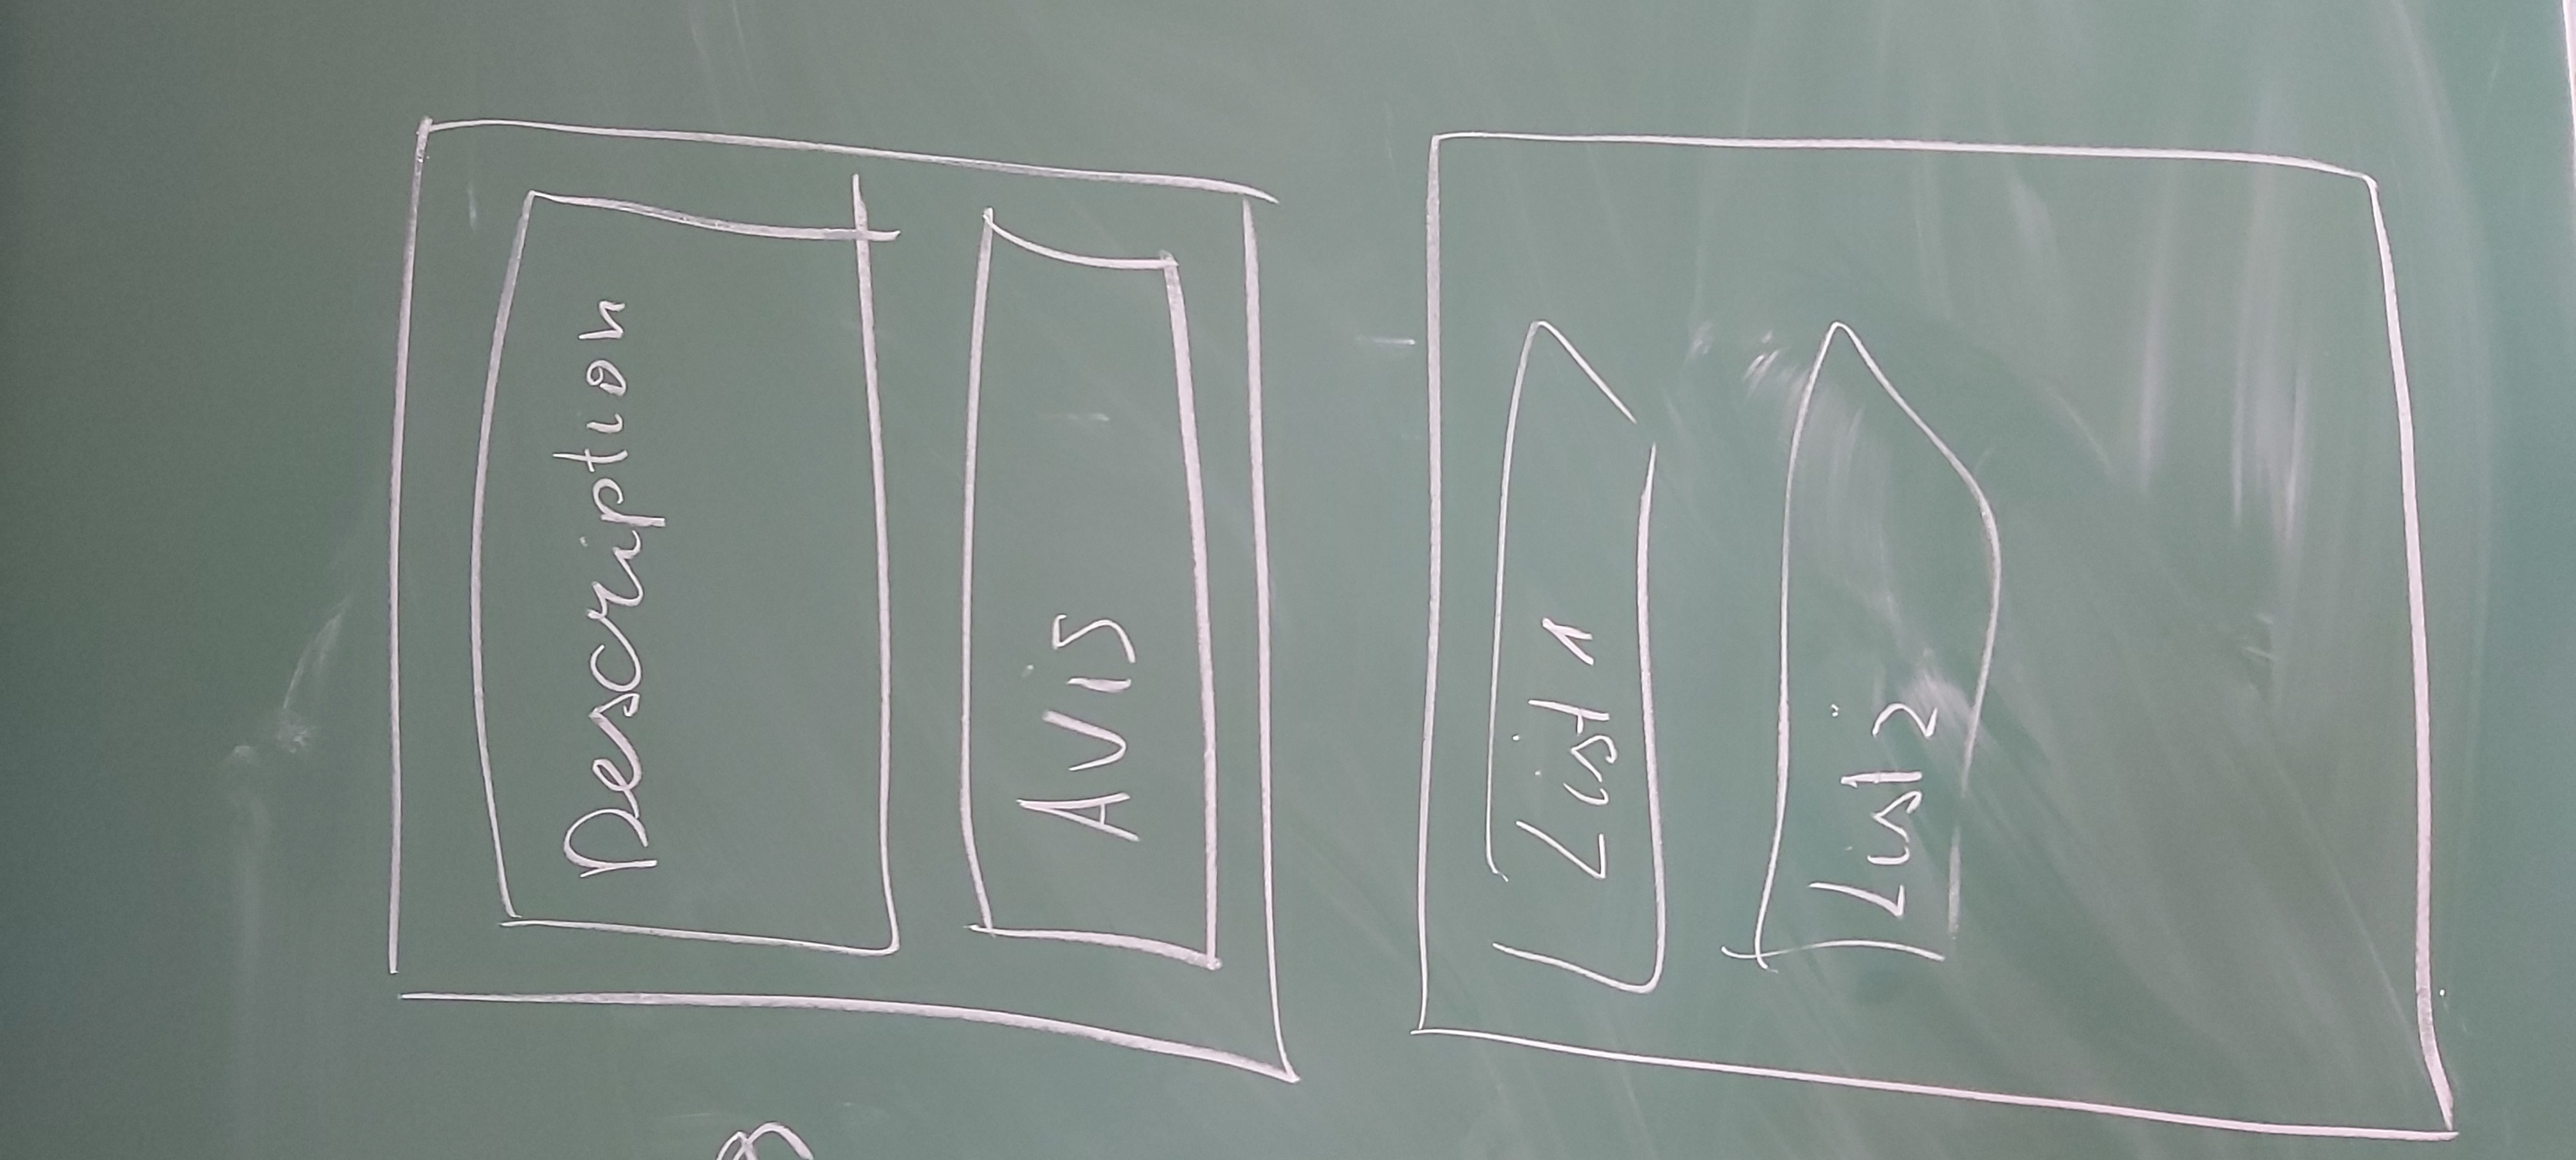 Description
Avis
List 1
List 2